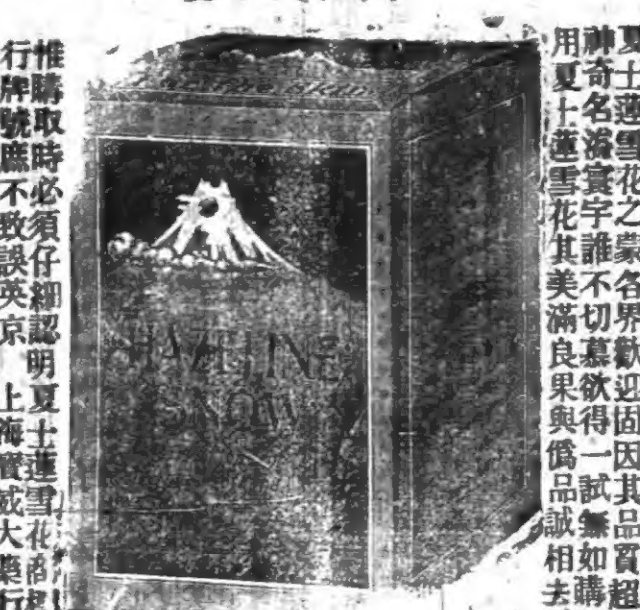 夏士蓮雪花之蒙各界歡迎固因其品質超
神奇名溢寰宇誰不切慕欲得一試無如購
用夏士蓮雪花其美滿良果與僞品誠相去
HAZELINE
SNOW
惟購取時必須仔細認明夏士蓮雪花商標
行牌號庶不致誤英京 上海寶威大藥行